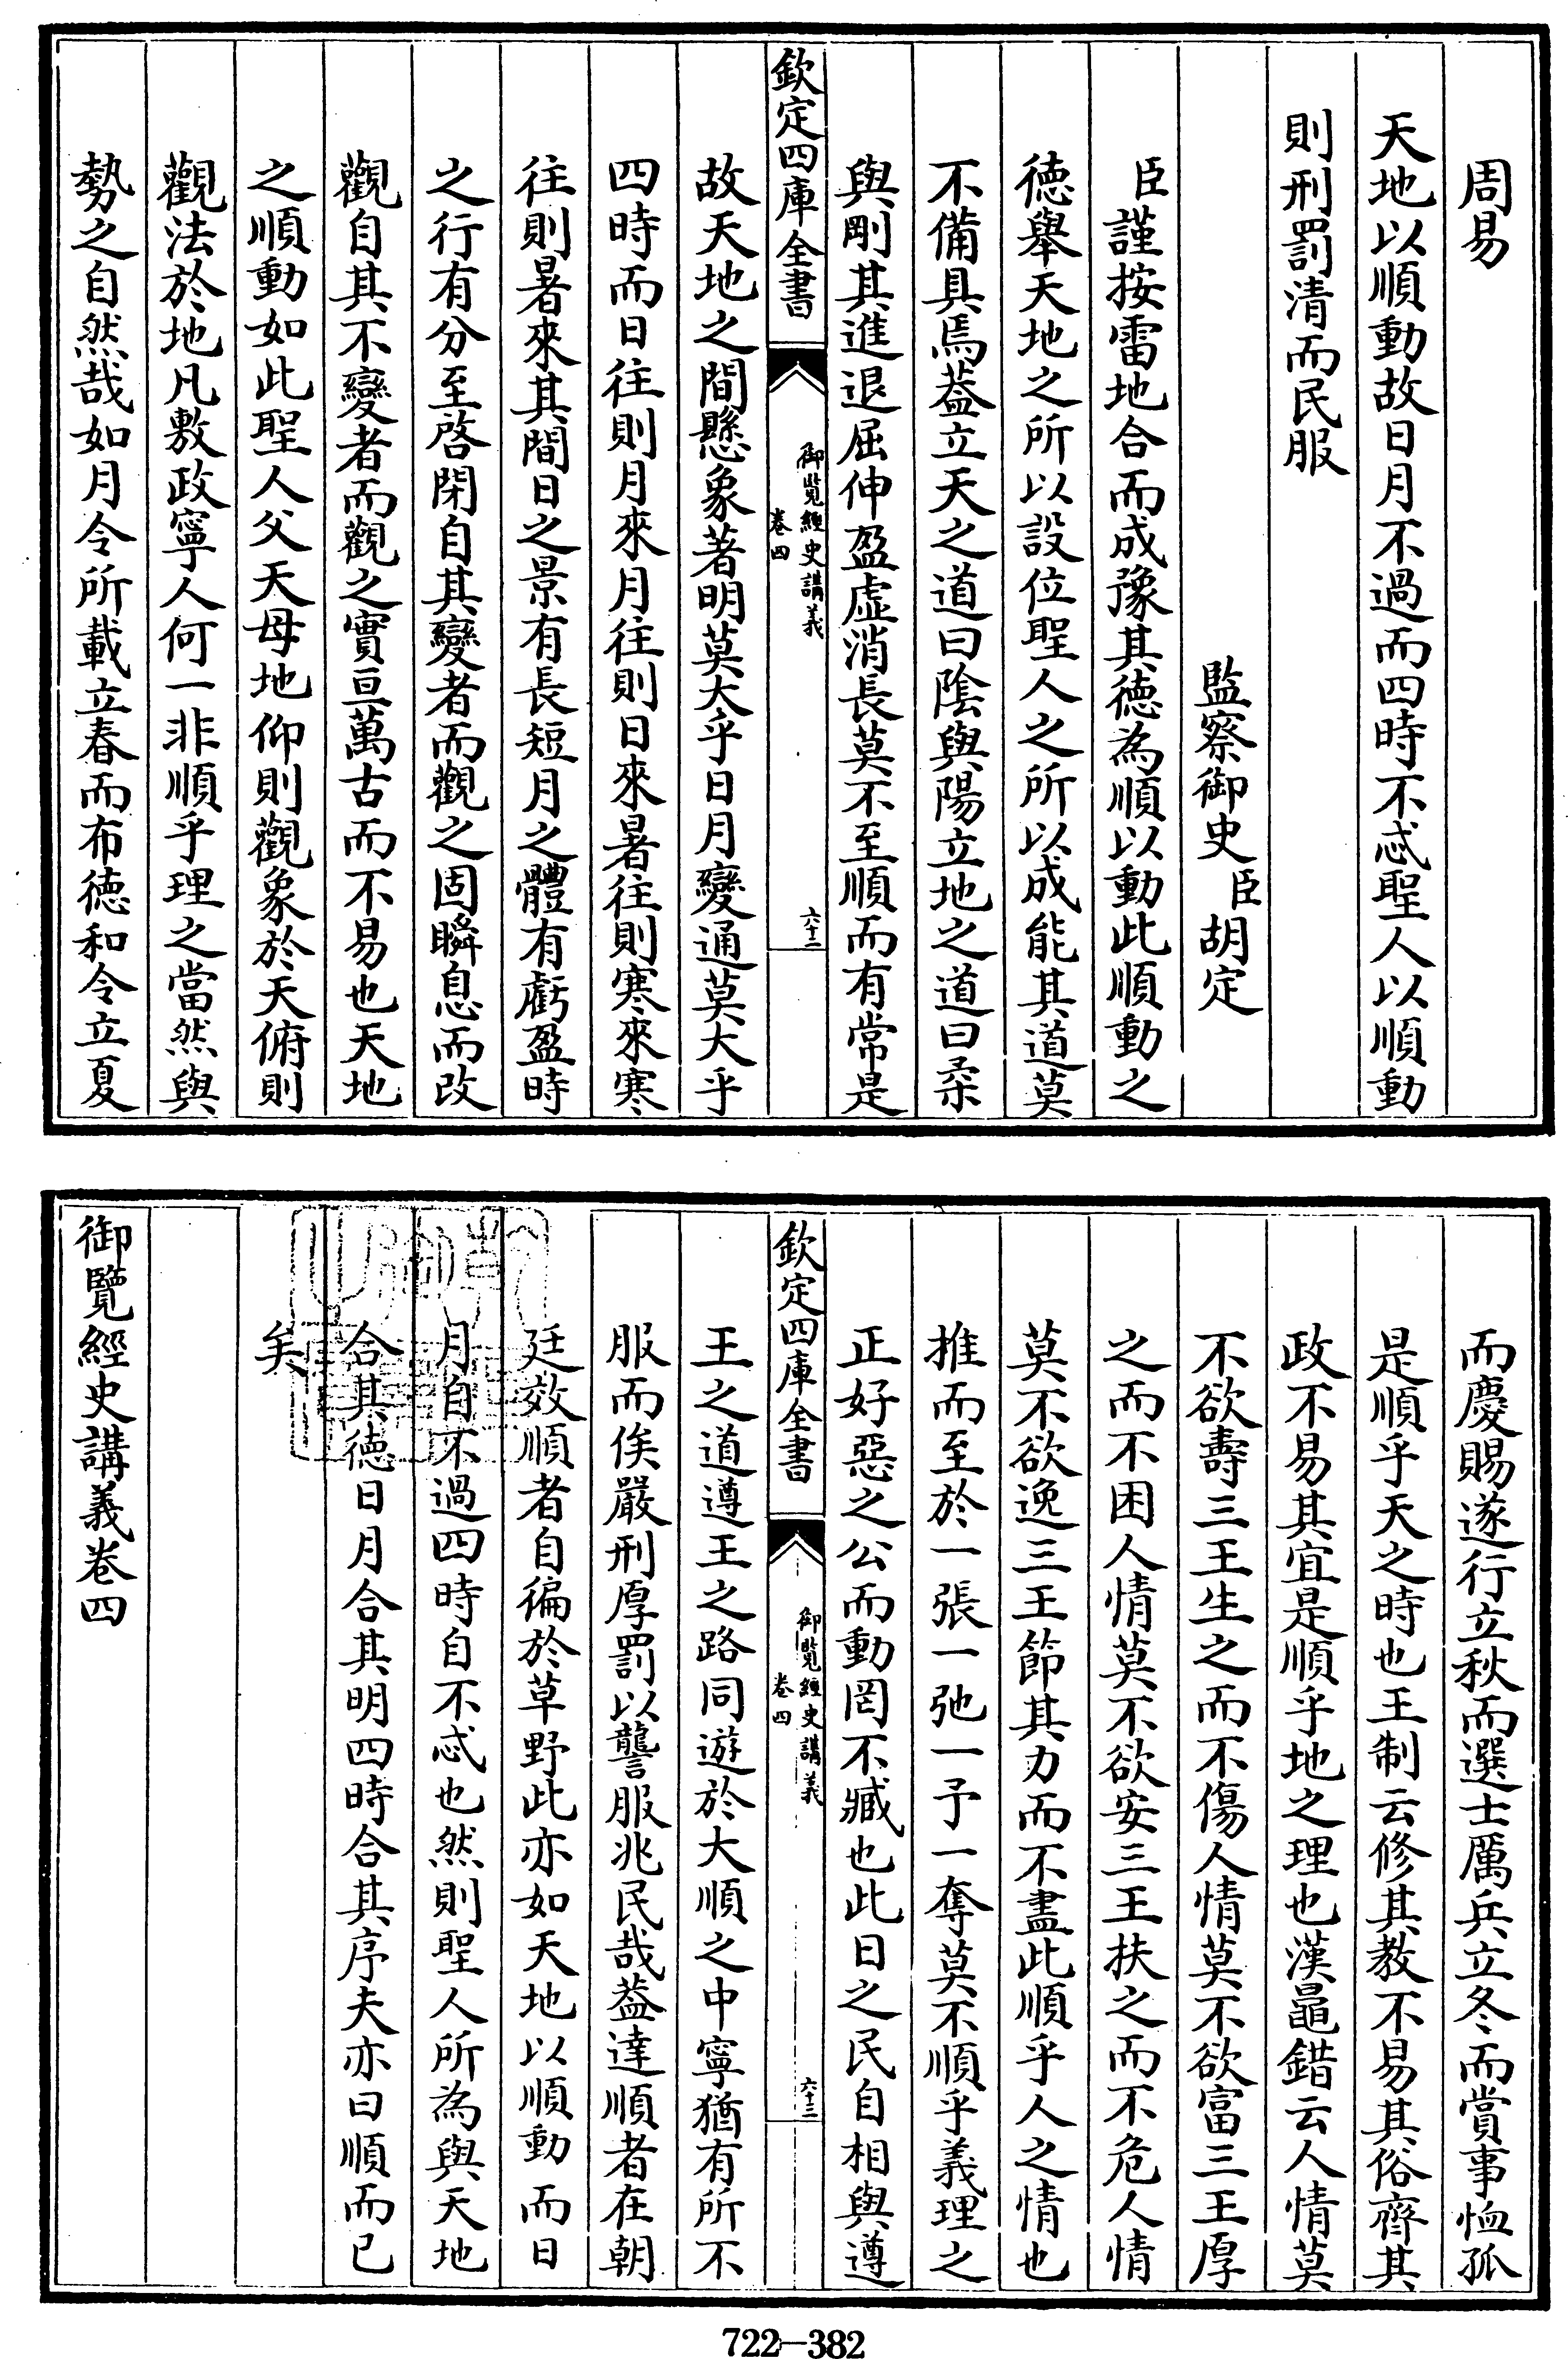 周易
天地以順動故日月不過而四時不忒聖人以順動
則刑罰清而民服
監察御史臣胡定
臣謹按雷地合而成豫其徳為順以動此順動之
徳舉天地之所以設位聖人之所以成能其道莫
不備具焉葢立天之道曰陰與陽立地之道曰柔
與剛其進退屈伸盈虛消長莫不至順而有常是
欽定四庫全書
御覽經史講義
卷四
六十二
故天地之間懸象著明莫大乎日月變通莫大乎
四時而日往則月來月往則日來暑往則寒來寒
往則暑來其間日之景有長短月之體有虧盈時
之行有分至啓閉自其變者而觀之固瞬息而改
觀自其不變者而觀之實亘萬古而不易也天地
之順動如此聖人父天母地仰則觀象於天俯則
觀法於地凡敷政寧人何一非順乎理之當然與
勢之自然哉如月令所載立春而布徳和令立夏
而慶賜遂行立秋而選士厲兵立冬而賞事恤孤
是順乎天之時也王制云修其教不易其俗齊其
政不易其宜是順乎地之理也漢鼂錯云人情莫
不欲壽三王生之而不傷人情莫不欲富三王厚
之而不困人情莫不欲安三王扶之而不危人情
莫不欲逸三王節其力而不盡此順乎人之情也
推而至於一張一弛一予一奪莫不順乎義理之
正好惡之公而動罔不臧也此日之民自相與遵
欽定四庫全書
御覽經史講義
卷四
六十三
王之道遵王之路同遊於大順之中寧猶有所不
服而俟嚴刑厚罰以讋服兆民哉葢達順者在朝
廷效順者自徧於草野此亦如天地以順動而日
月自不過四時自不忒也然則聖人所為與天地
合其徳日月合其明四時合其序夫亦曰順而已
矣
御覽經史講義卷四
722-382